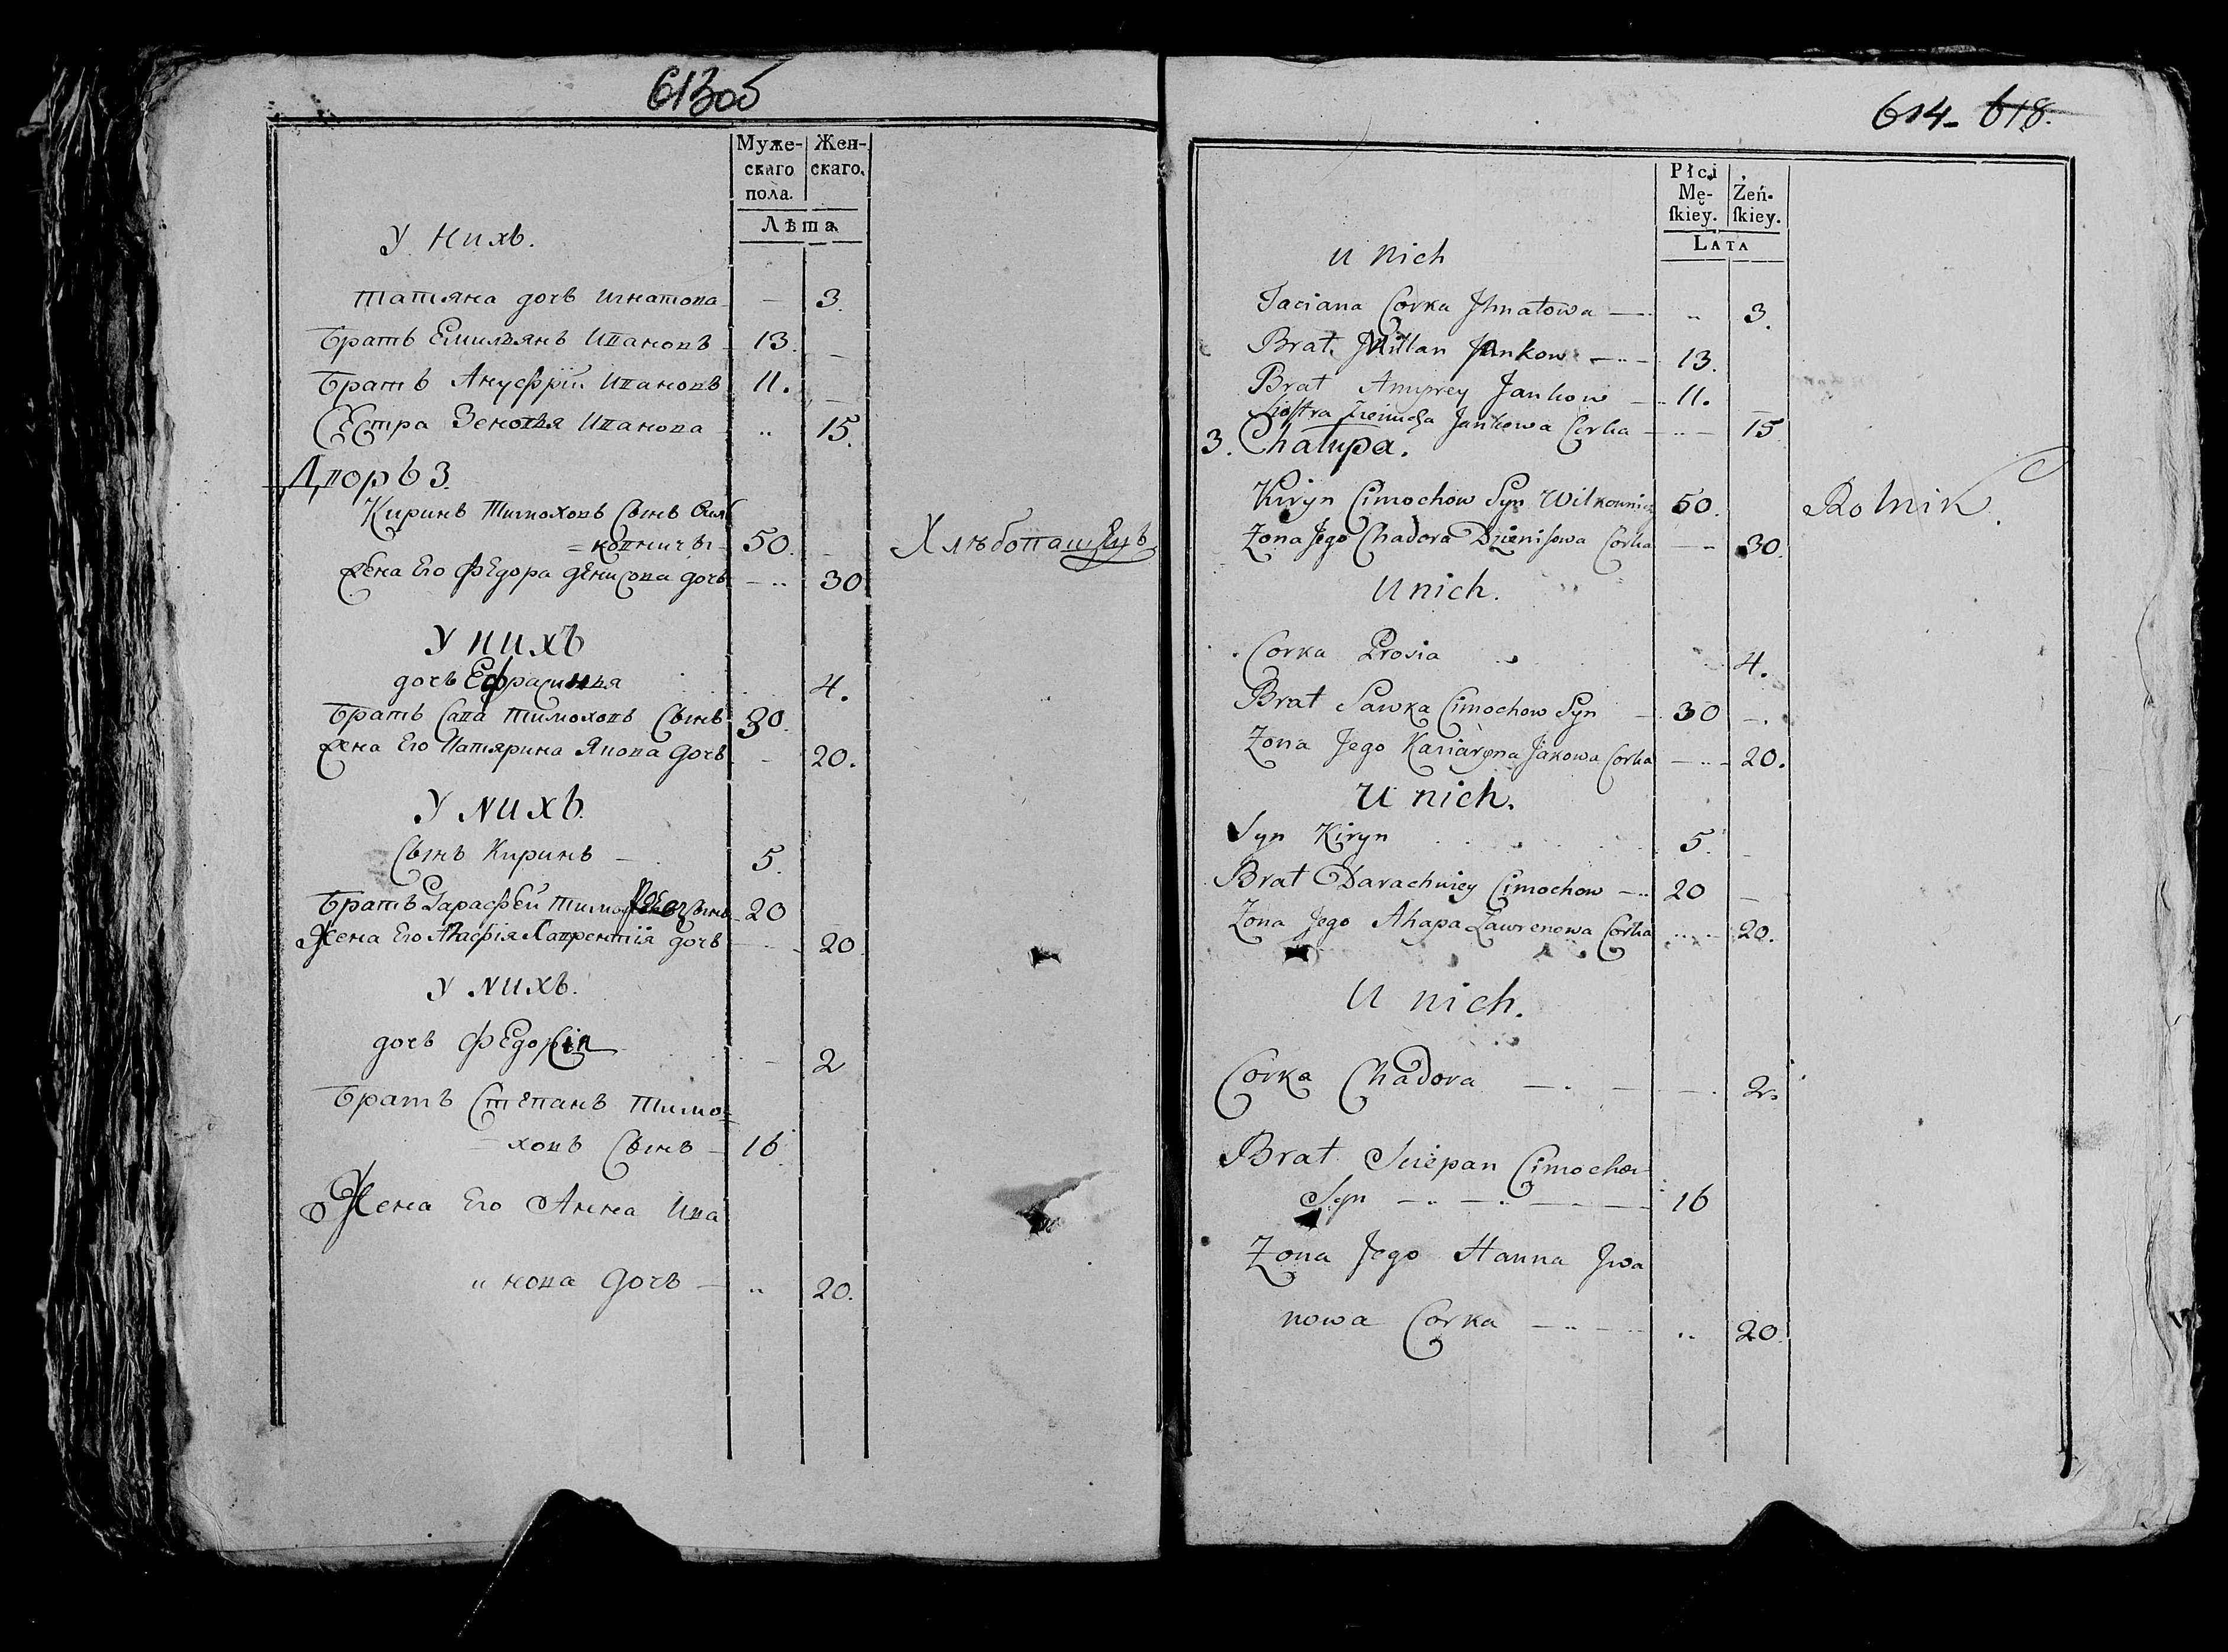 613об
Муже-
скаго
пола.
Жен-
скаго.
Лѣта
У Нихъ.
Татьяна дочь Игнатова - 3.
Братъ Емильянъ Ивановъ 13. -
Братъ Ануфрїй Ивановъ 11. -
Сестра Зеновья Иванова .. 15.
Дворъ 3.
Киринъ Тимоховъ Сынъ Вил
=ковничъ - 50. - Хлѣбопашецъ
Жена Его Федора Денисова дочь - .. 30
У нихъ
дочь Ефрасинья 4.
Братъ Сава Тимоховъ Сынъ 30.
Жена Его Катярина Якова дочь - 20.
У нихъ.
Сынъ Киринъ - 5.
Братъ Дарафей Сынъ 20
Жена Его Агафія Лаврентїя дочь 20
У нихъ.
дочь Федора - 2
Братъ Степанъ Тимо=
=ховъ Сынъ - 16.
Жена Его Анна Ива
" нова дочь - .. 20.
614- 618.
Płci
Mę-
skiey.
Żeń-
skiey.
LATA
U Nich
Taciana Corka Jhnatowa - .. 3.
Brat Jankow - .. - 13.
Brat Anuprey Jankow - .. 11.
Siostra Jankowa Corka - .. - 15
3. Chałupa.
Kiryn Cimochow Syn Wilkownicz 50. Rolnik.
Zona Jego Chadora Dzienisowa Corka - .. 30.
U nich.
Corka Prosia 4.
Brat Sawka Cimochow Syn - 30 -.
Zona Jego Kaciaryna Jakowa Corka - .. - 20.
U nich.
Syn Kiryn 5. -
Brat Darachwiey Cimochow - .. 20 -
Zona Jego Ahapa Lawrenowa Corka .. .. - 20.
U nich.
Corka Chadora - . - - . 2.
Brat Sciepan Cimochow
Syn - .. - .. - - - 16
Zona Jego Hanna Jwa
nowa Corka - .. - .. .. 20.